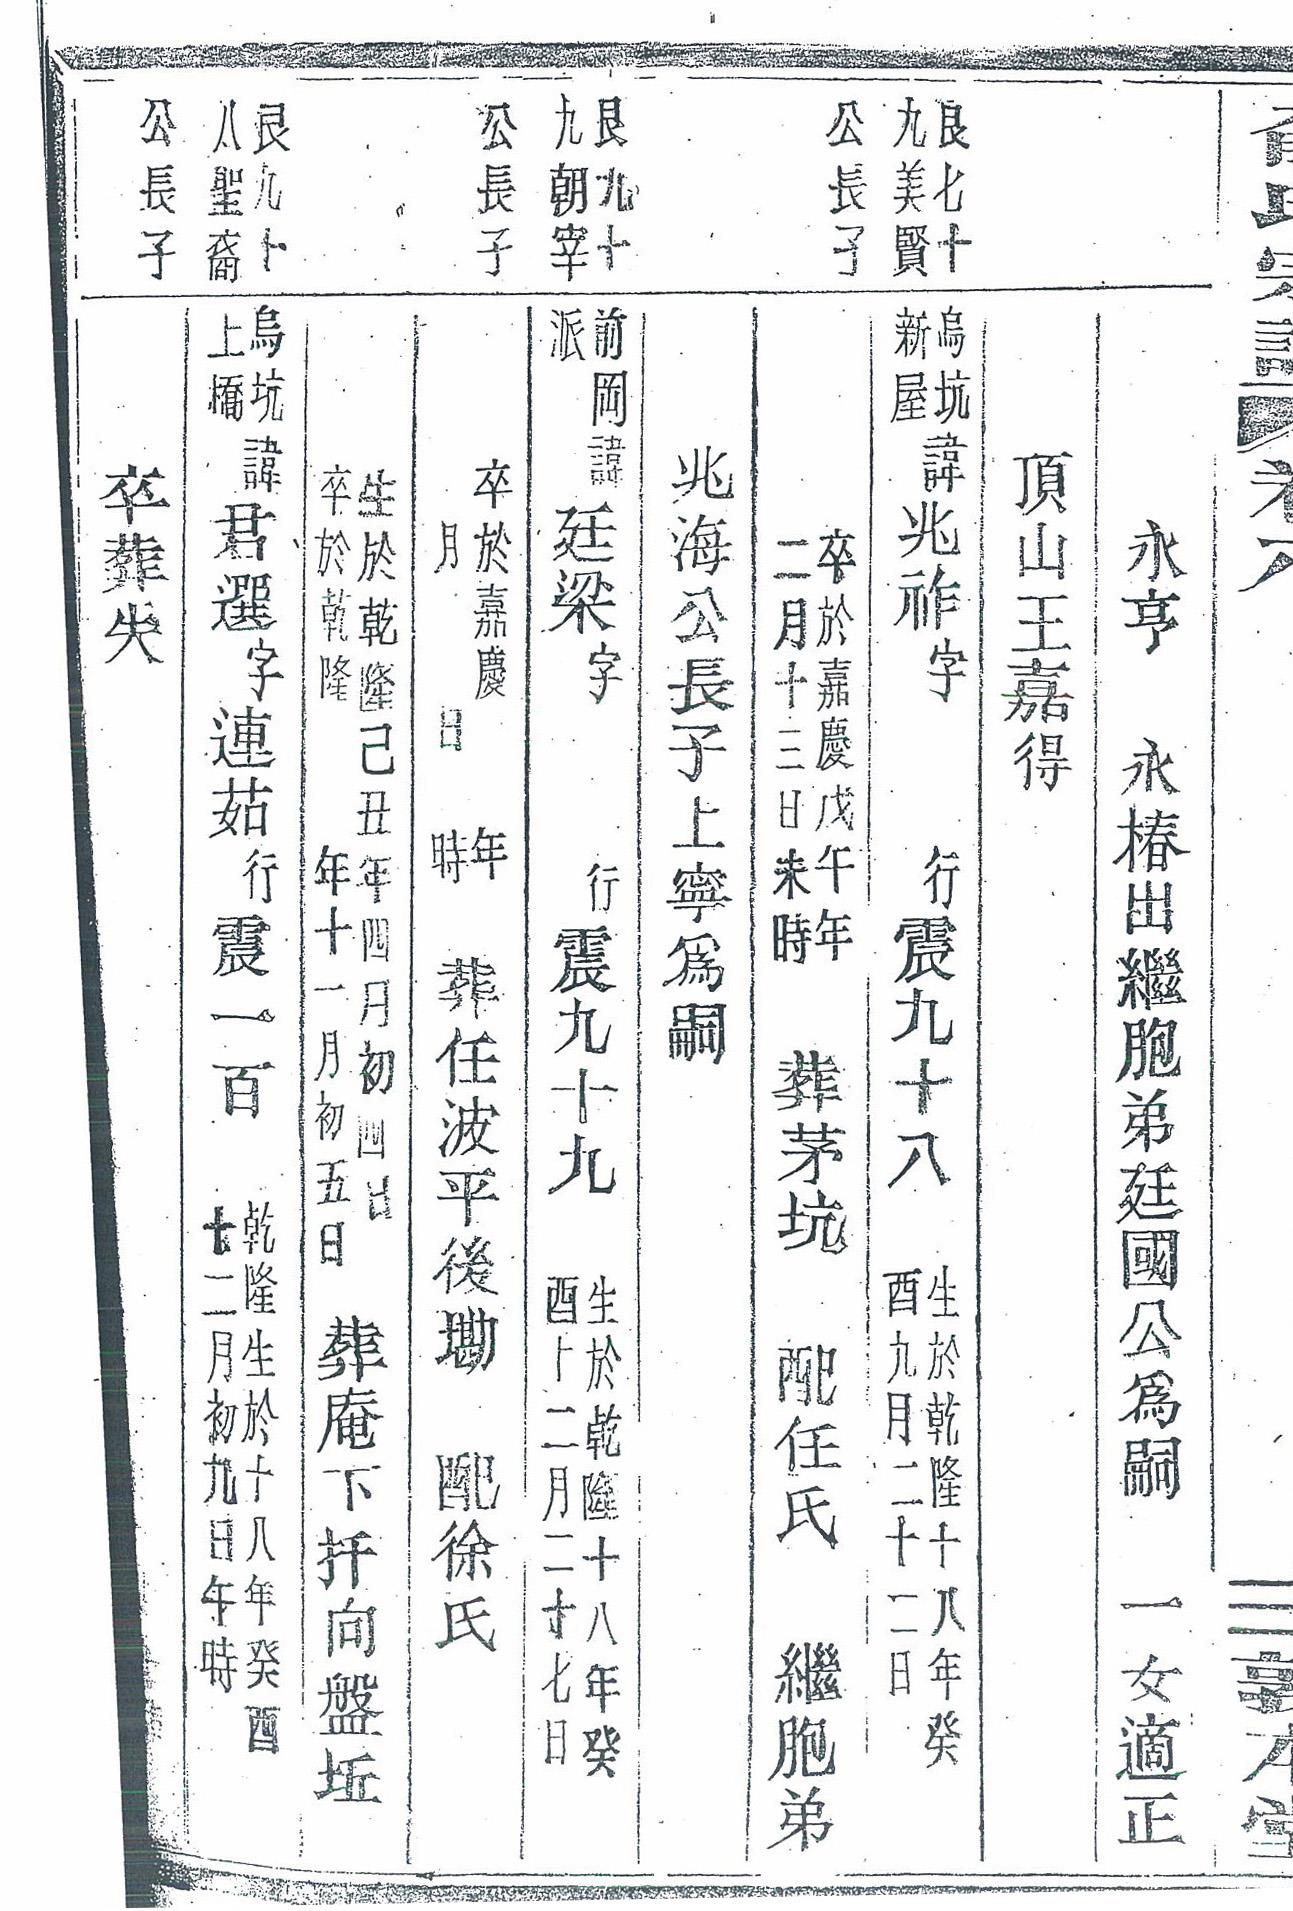 氏宗譜 卷八 三 敦本堂
永亨 永椿出繼胞弟廷國公為嗣 一女適正
頂山王嘉得
艮七十
九美賢
公長子
烏坑
新屋
諱兆祚字 行震九十八 生於乾隆十八年癸
酉九月二十二日
卒於嘉慶戊午年
二月十三日未時
葬茅坑 配任氏 繼胞弟
兆海公長子上寧為嗣
艮九十
九朝宰
公長子
前岡
派
諱廷梁字 行震九十九 生於乾隆十八年癸
酉十二月二十七日
卒於嘉慶 年
月 日 時
葬任波平後墈 配徐氏
生於乾隆己丑年四月初四日
卒於乾隆 年十一月初五日
葬庵下扦向盤坵
艮九十
八聖裔
公長子
烏坑
上橋
諱君選字連茹行震一百 乾隆生於十八年癸酉
十二月初九日午時
卒葬失